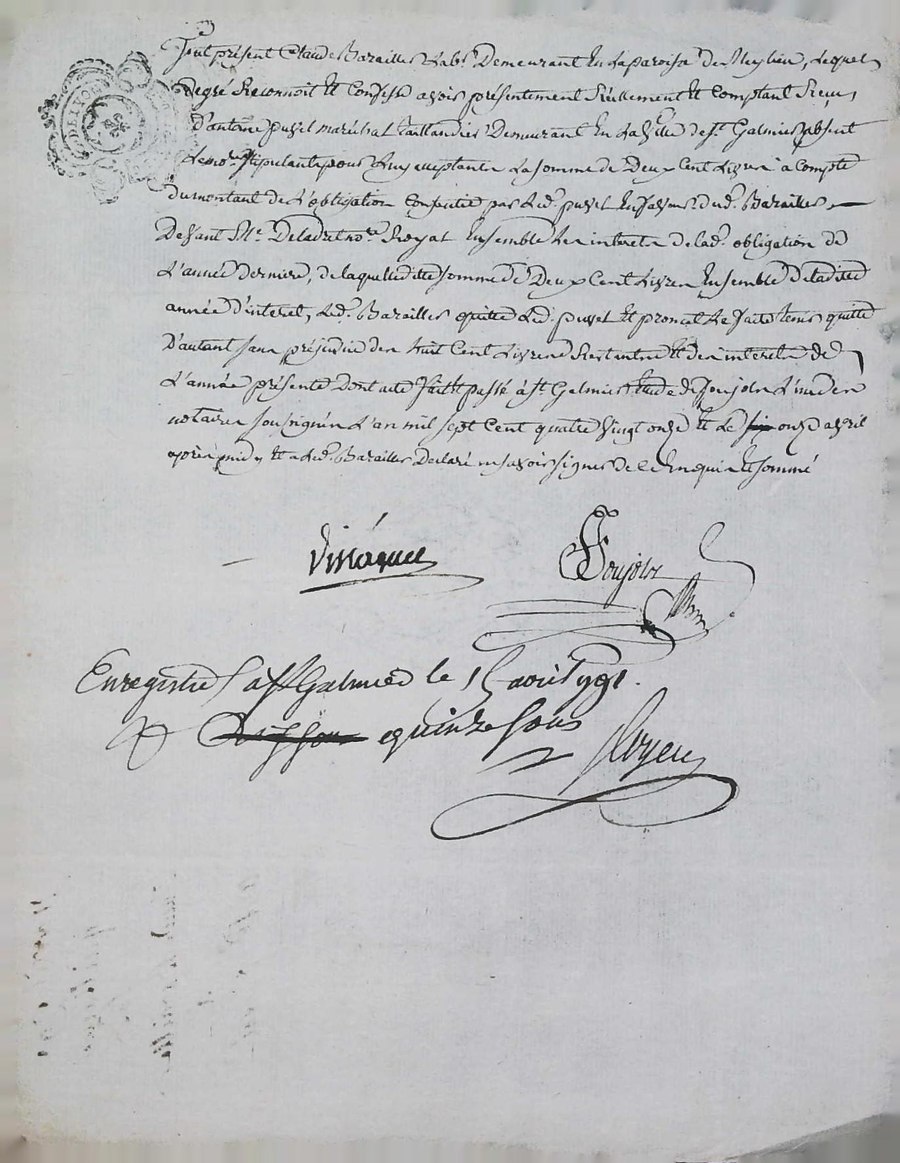 fut présent Claude Barailler Lab.r Demeurant En la paroisse de Meylieu, Lequel
de gré Reconnoit Et Confesse avoir présentement Réellement Et Comptant Reçu,
D'antoine puyet maréchal taillandier Demeurant En La Ville de St. Galmier absent
Le no.re stipulant pour Luy acceptant La somme de Deux Cent Livres à Compte
du montant de L'obligation Consentie par Led. puyet En faveur dud. Barailler,
Devant Me. Deladret no.re Royal Ensemble Les interets de lad. obligation de
L'année derniere, de laquelle ditte somme de Deux Cent Livres Ensemble de laditte
année d'interet, Led. Barailler quitte Led. puyet Et promet Le faire tenir quitte
D'autant sans préjudice des huit Cent Livres Restantes Et des interets de
L'année présente dont acte fait Et passé à St. Galmier Etude de Joujoln L'un des
notaires soussignés L'an mil sept Cent quatre Vingt onze Et Le onze avril
après midy Et a Led. Barailler Déclaré ne savoir signer de ce Enquis Et sommé
Joujoln
Enregistré à St Galmier le 15 avril 1791.
R quinze sous